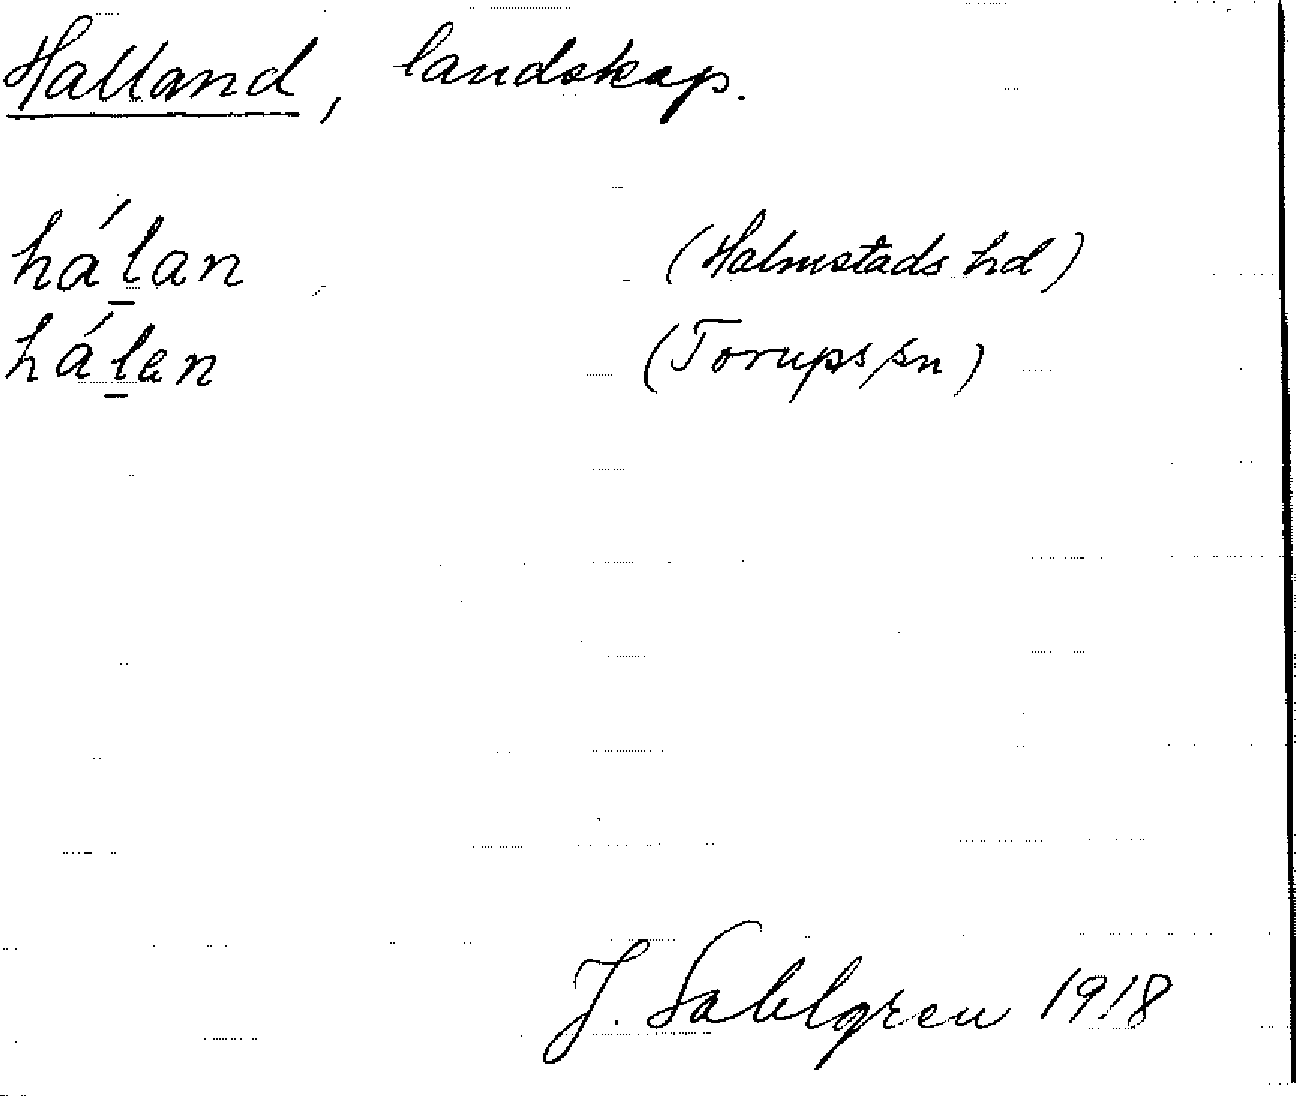 Halland, landskap.
hál̲an (Halmstads hd)
hál̲en (Torups sn)
J. Sahlgren 1918